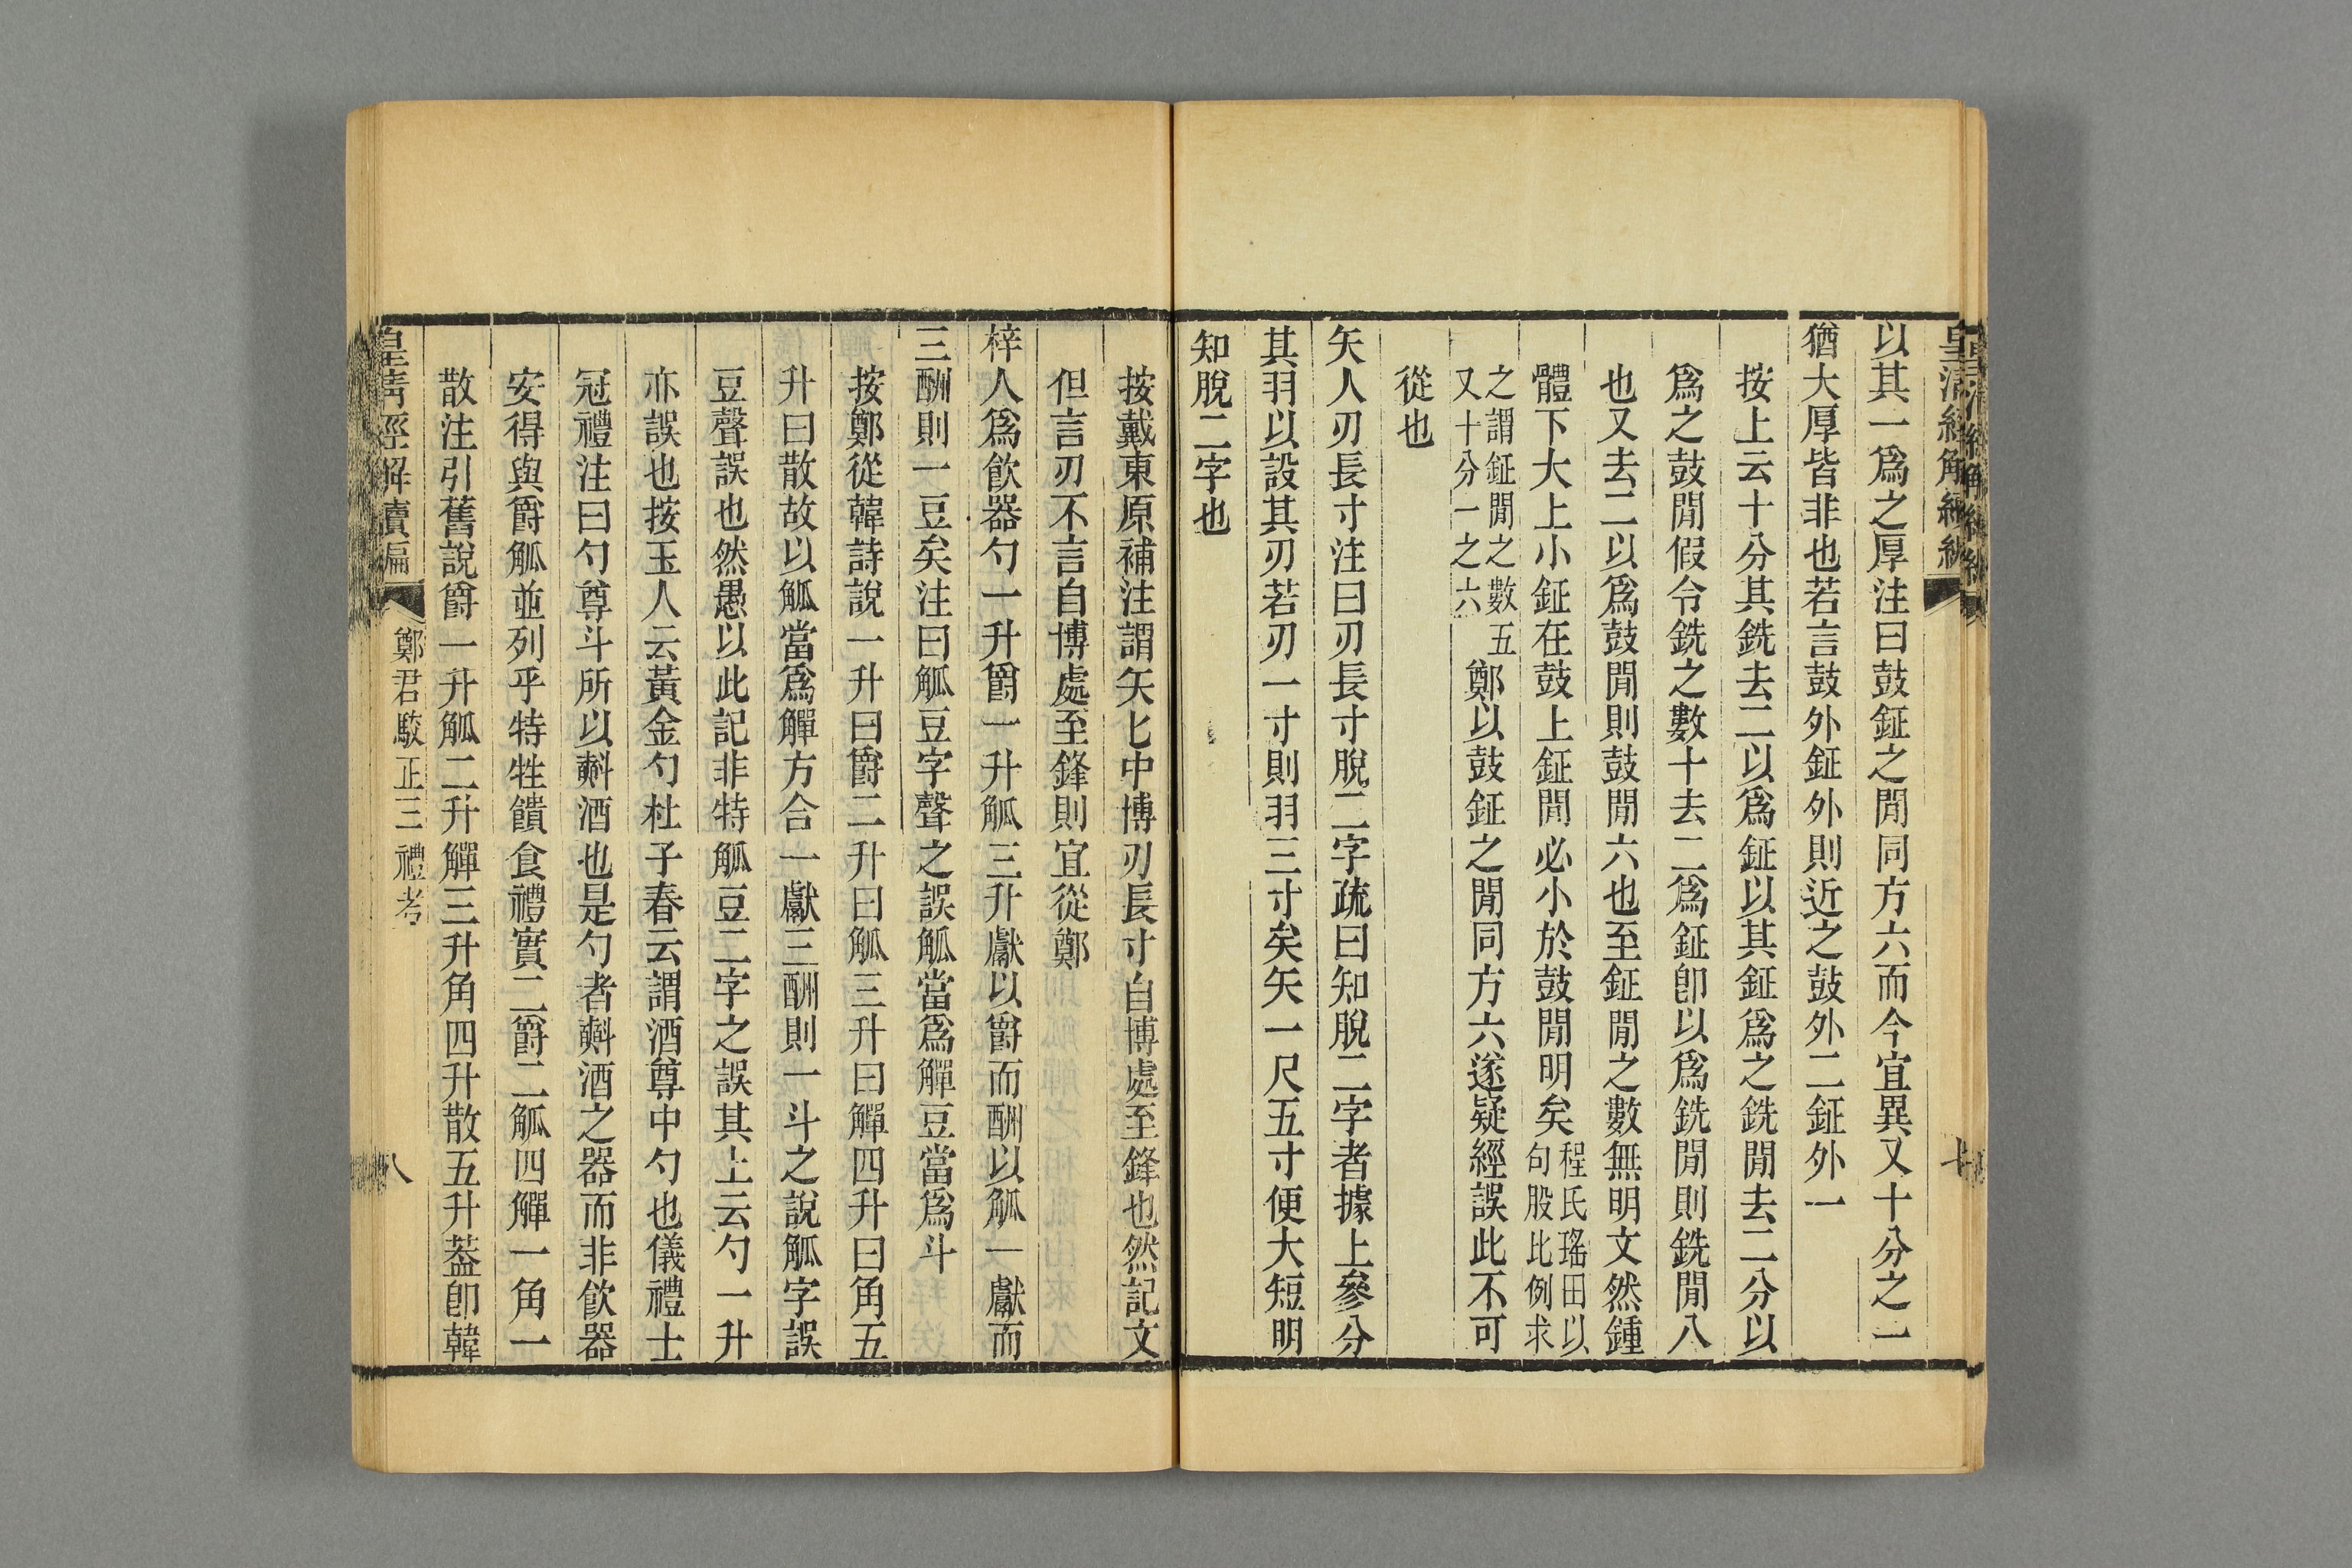 以其一爲之厚注曰鼓鉦之閒同方六而今宜異又十分之一
猶大厚皆非也若言鼓外鉦外則近之鼓外二鉦外一
按上云十分其銑去二以爲鉦以其鉦爲之銑閒去二分以
爲之鼓閒假令銑之數十去二爲鉦卽以爲銑閒則銑閒八
也又去二以爲鼓閒則鼓閒六也至鉦閒之數無明文然鍾
體下大上小鉦在鼓上鉦閒必小於鼓閒明矣程氏瑤田以
句股比例求
之謂鉦閒之數五
又十分一之六鄭以鼓鉦之閒同方六遂疑經誤此不可
從也
矢人刃長寸注曰刃長寸脫二字疏曰知脫二字者據上參分
其羽以設其刃若刃一寸則羽三寸矣矢一尺五寸便大短明
知脫二字也
按戴東原補注謂矢匕中博刃長寸自博處至鋒也然記文
但言刃不言自博處至鋒則宜從鄭
梓人爲飮器勺一升爵一升觚三升獻以爵而酬以觚一獻而
三酬則一豆矣注曰觚豆字聲之誤觚當爲觶豆當爲斗
按鄭從韓詩說一升曰爵二升曰觚三升曰觶四升曰角五
升曰散故以觚當爲觶方合一獻三酬則一斗之說觚字誤
豆聲誤也然愚以此記非特觚豆二字之誤其上云勺一升
亦誤也按玉人云黃金勺杜子春云謂酒尊中勺也儀禮士
冠禮注曰勺尊斗所以㪺酒也是勺者㪺酒之器而非飮器
安得與爵觚並列乎特牲饋食禮實二爵二觚四觶一角一
散注引舊說爵一升觚二升觶三升角四升散五升葢卽韓
皇淸經解續編
鄭君駁正三禮考
八